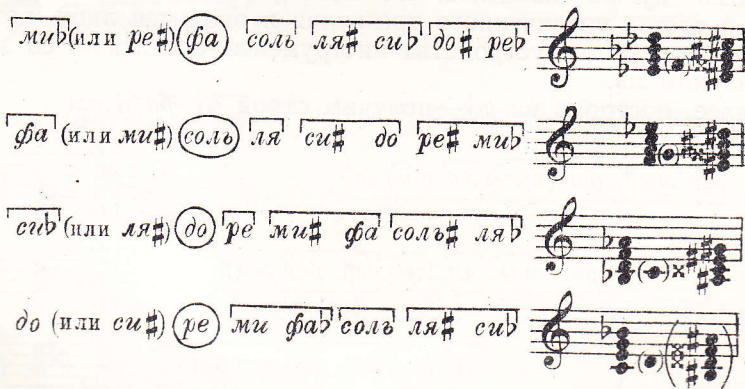 ми♭ (или ре♯) фа соль ля♯ си♭ до♯ ре♭
фа (или ми♯) соль ля си♯ до ре♯ ми♭
си♭ (или ля♯) до ре ми♯ фа соль♯ ля♭
до (или си♯) ре ми фа♭ соль ля♯ си♭